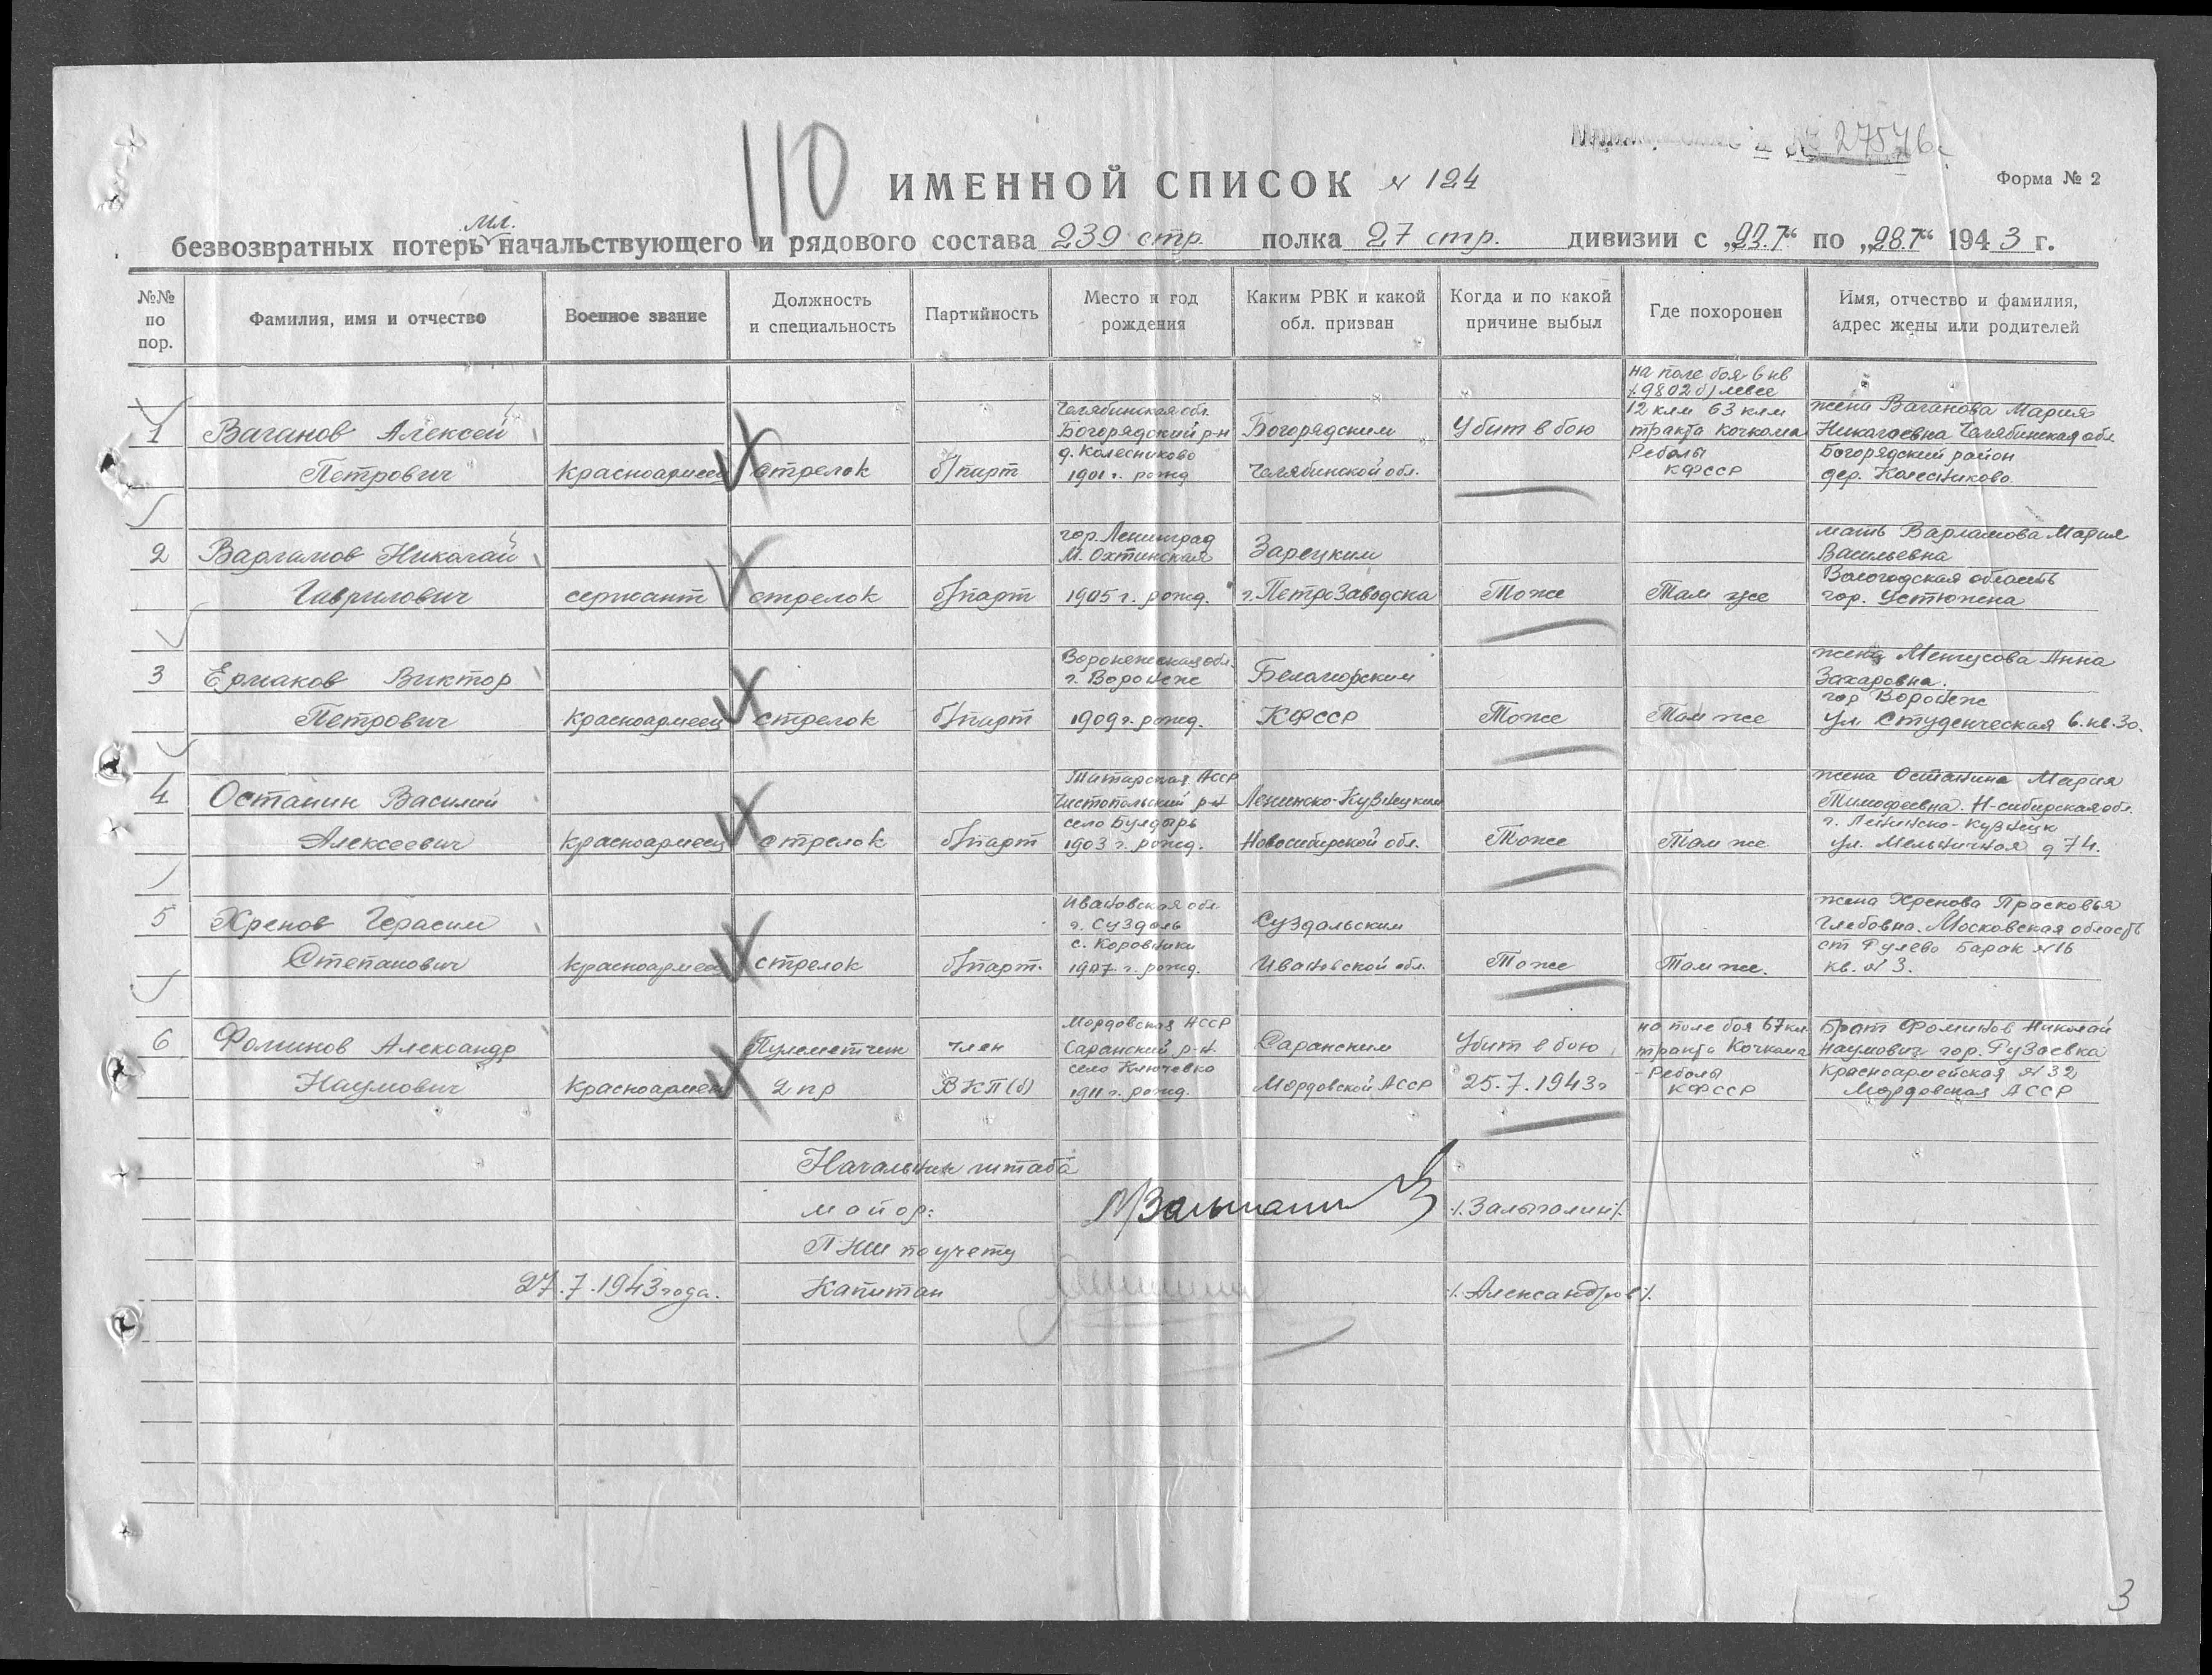 110
№ 27576с
ИМЕННОЙ СПИСОК № 124
Форма № 2
мл.
безвозвратных потерь начальствующего и рядового состава 239 стр. полка 27 стр. дивизии с „23.7“ по „28.7“ 1943 г.
№№ по пор.
Фамилия, имя и отчество
Военное звание
Должность и специальность
Партийность
Место и год рождения
Каким РВК и какой обл. призван
Когда и по какой причине выбыл
Где похоронен
Имя, отчество и фамилия, адрес жены или родителей
1
Ваганов Алексей
Петрович
Красноармеец
стрелок
б/парт
Челябинская обл.
Богорядский р-н
д. Колесниково
1901 г. рожд
Богорядским
Челябинской обл.
Убит в бою
на поле боя в кв
(9802б) левее
12 клм 63 клм
тракта Кочкома
Реболы
КФССР
жена Ваганова Мария
Николаевна Челябинская обл.
Богорядский район
дер. Колесниково
2
Варламов Николай
Гаврилович
сержант
стрелок
б/парт
гор. Ленинград
М. Охтинская
1905 г. рожд.
Зарецким
г. Петрозаводска
Тоже
Там же
мать Варламова Мария
Васильевна
Вологодская область
гор. Устюжена
3
Ермаков Виктор
Петрович
Красноармеец
стрелок
б/парт
Воронежская обл.
г. Воронеж
1909 г. рожд.
Беломорским
КФССР
Тоже
Там же
жена Анна
Захаровна.
гор Воронеж
ул. Студенческая 6. кв. 30.
4
Останин Василий
Алексеевич
Красноармеец
стрелок
б/парт
Татарская АССР
Чистопольский р-н
село Булдырь
1903 г. рожд.
Ленинско-Кузнецким
Новосибирской обл.
Тоже
Там же
жена Останина Мария
Тимофеевна. Н-сибирская обл.
г. Ленинско-Кузнецк
ул. Мельничная д 74.
5
Хренов Герасим
Степанович
Красноармеец
стрелок
б/парт.
Ивановская обл.
г. Суздаль
с. Коровники
1907 г. рожд.
Суздальским
Ивановской обл.
Тоже
Там же.
жена Хренова Прасковья
Глебовна. Московская область
ст Гулево Барак № 16
кв. № 3.
6
Фоминов Александр
Наумович
Красноармеец
Пулеметчик
2 пр
член
ВКП(б)
Мордовская АССР
Саранский р-н.
село Ключевко
1911 г. рожд.
Саранским
Мордовской АССР
Убит в бою
25.7.1943 г
на поле боя 67 км.
тракта Кочкома
- Реболы
КФССР
Брат Фоминов Николай
Наумович гор. Рузаевка
Красноармейская № 32
Мордовская АССР
Начальник штаба
майор:
/Залыгалин/.
ПНШ по учету
27.7.1943 года.
Капитан
/Александров/.
3